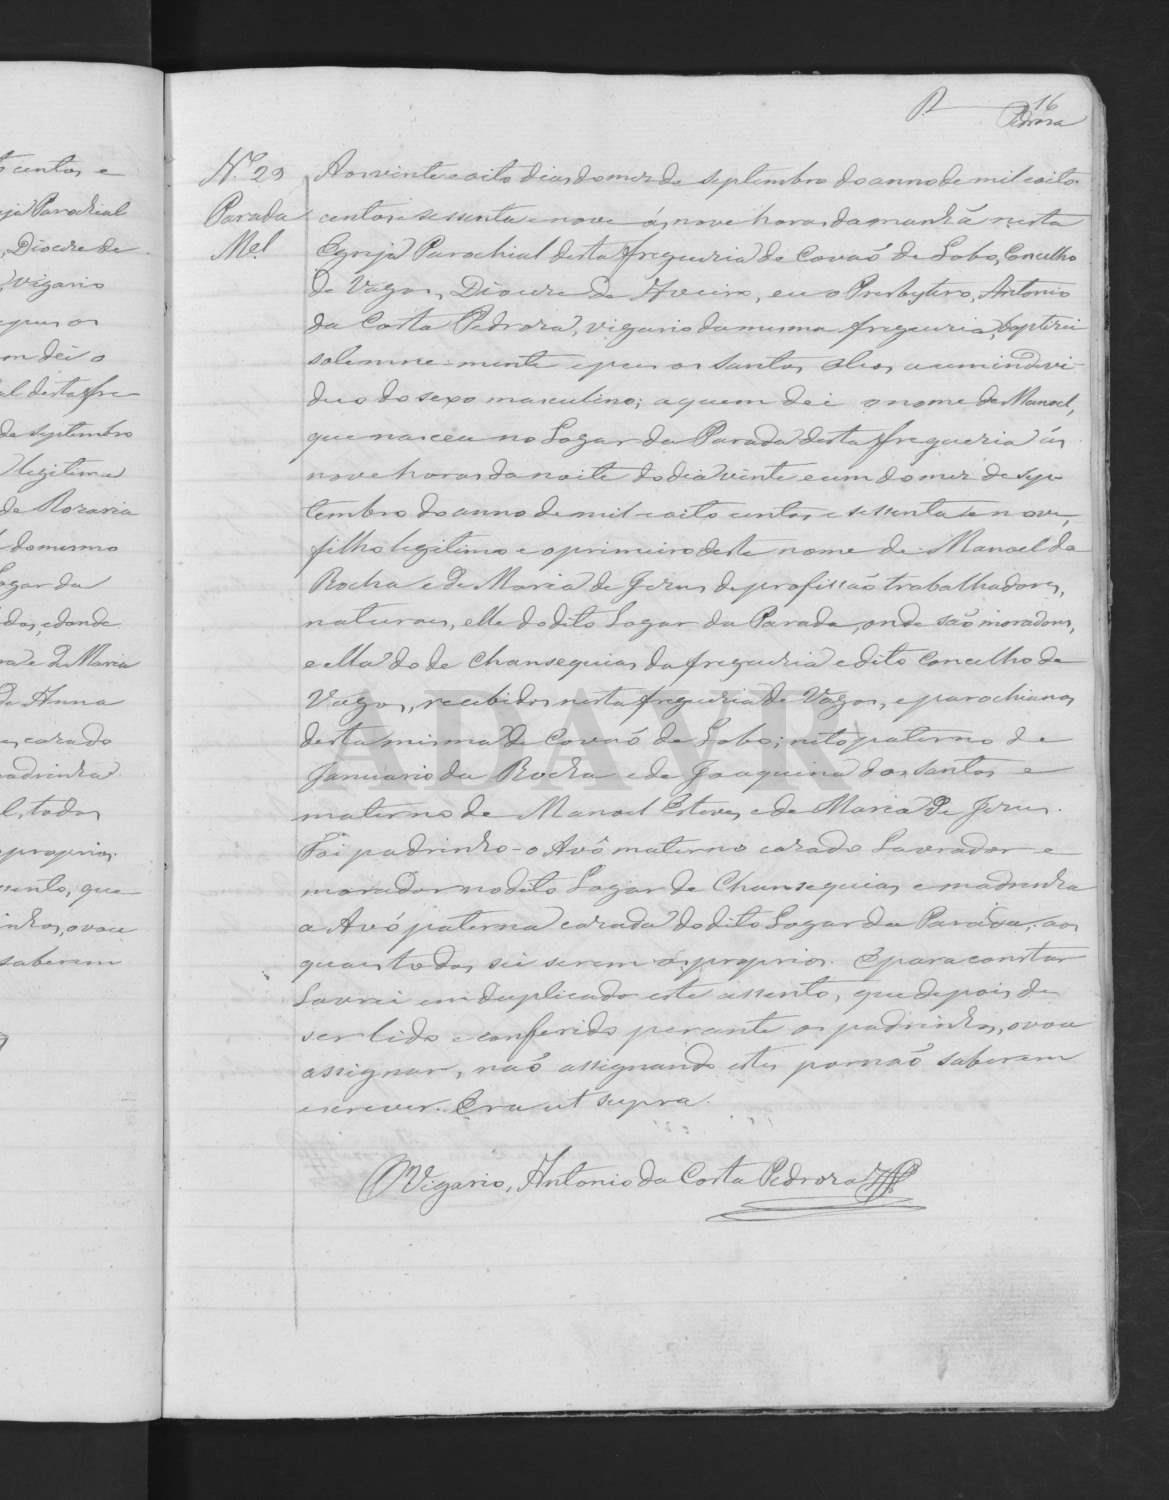 16
Pedroza
centos e
Parochial
Diocese de
vigario
dei o
desta fre
de septembro
legitima
de Rozaria
do mesmo
Logar da
e donde
e de Maria
de Anna
cazado
madrinha
todos
proprios.
assento, que
ovou
saberem
Nº 29
Parada
Mel
Aos vinte e oito dias do mez de septembro do anno de mil e oito
centos e sessenta e nove ás nove horas da manhã nesta
Egreja Parochial desta freguezia de Covaó de Lobo, Concelho
de Vagos, Diocese de Aveiro, eu o Presbytero, Antonio
da Costa Pedroza, vigario da mesma freguezia, baptizei
solemne-mente e puz os santos oleos a um indivi-
duo do sexo masculino; a quem dei o nome de Manoel,
que nasceu no Logar da Parada desta freguezia ás
nove horas da noite do dia vinte e um do mez de sep-
tembro do anno de mil e oito centos e sessenta e nove,
filho legitimo e o primeiro deste nome de Manoel da
Rocha e de Maria de Jezus de profissaõ trabalhadores,
naturaes, elle do dito Logar da Parada, onde saõ moradores,
e ella do de Chansequias da freguezia e dito Concelho de
Vagos, recebidos nesta freguezia de Vagos, e parochianos
desta mesma de Covaó de Lobo; neto paterno de
Januario da Rocha e de Joaquina dos Santos e
materno de Manoel Esteves e de Maria de Jezus.
Foi padrinho o Avô materno cazado Lavrador e
morador no dito Logar de Chansequias e madrinha
a Avó paterna cazada do dito Logar da Parada, aos
quaes todos sei serem os proprios. E para constar
Lavrei em duplicado este assento, que depois de
ser lido e conferido perante os padrinhos, o vou
assignar, naó assignando estes por naó saberem
escrever. Era ut supra.
O Vigario, Antonio da Costa Pedroza
ADAVR